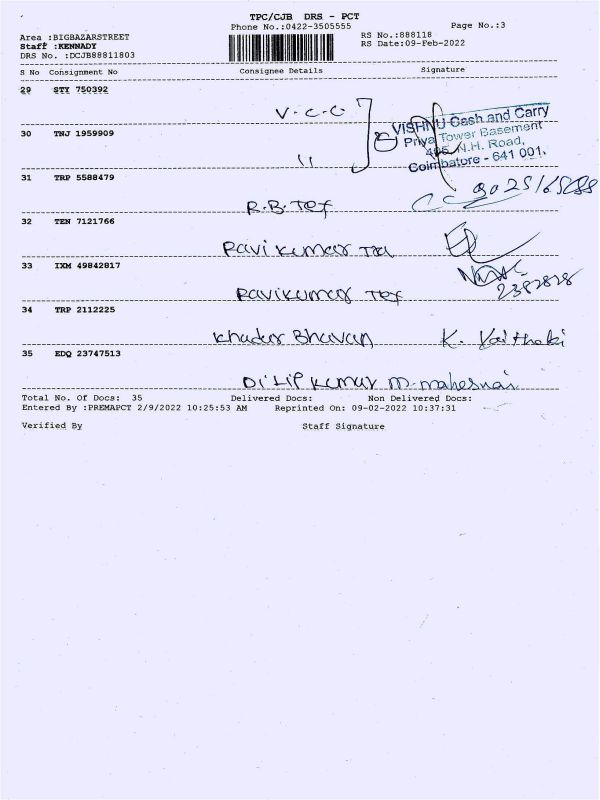 TPC/CJB DRS - PCT
Phone No.:0422-3505555
Page No.:3
Area :BIGBAZARSTREET
RS No.:888118
Staff :KENNADY
RS Date:09-Feb-2022
DRS No. :DCJB88811803
S No Consignment No Consignee Details Signature
29 STY 750392
V.C.C
30 TNJ 1959909
"
VISHNU Cash and Carry
Priya Tower Basement
N.H. Road,
Coimbatore - 641 001.
31 TRP 5588479
R.B.Tex
32 TEN 7121766
Ravi kumar
33 IXM 49842817
Ravikumar Tex
2382828
34 TRP 2112225
Khader Bhavan K.
35 EDQ 23747513
Dilip kumar m.
Total No. Of Docs: 35 Delivered Docs: Non Delivered Docs:
Entered By :PREMAPCT 2/9/2022 10:25:53 AM Reprinted On: 09-02-2022 10:37:31
Verified By Staff Signature